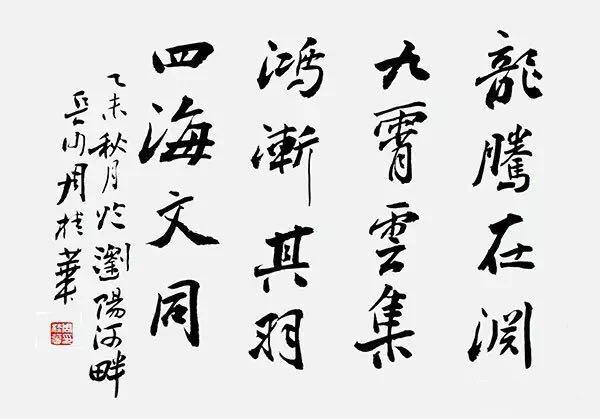 龍騰在淵
九霄雲集
鴻漸其羽
四海文同
乙未秋月於瀏陽河畔
周桂華